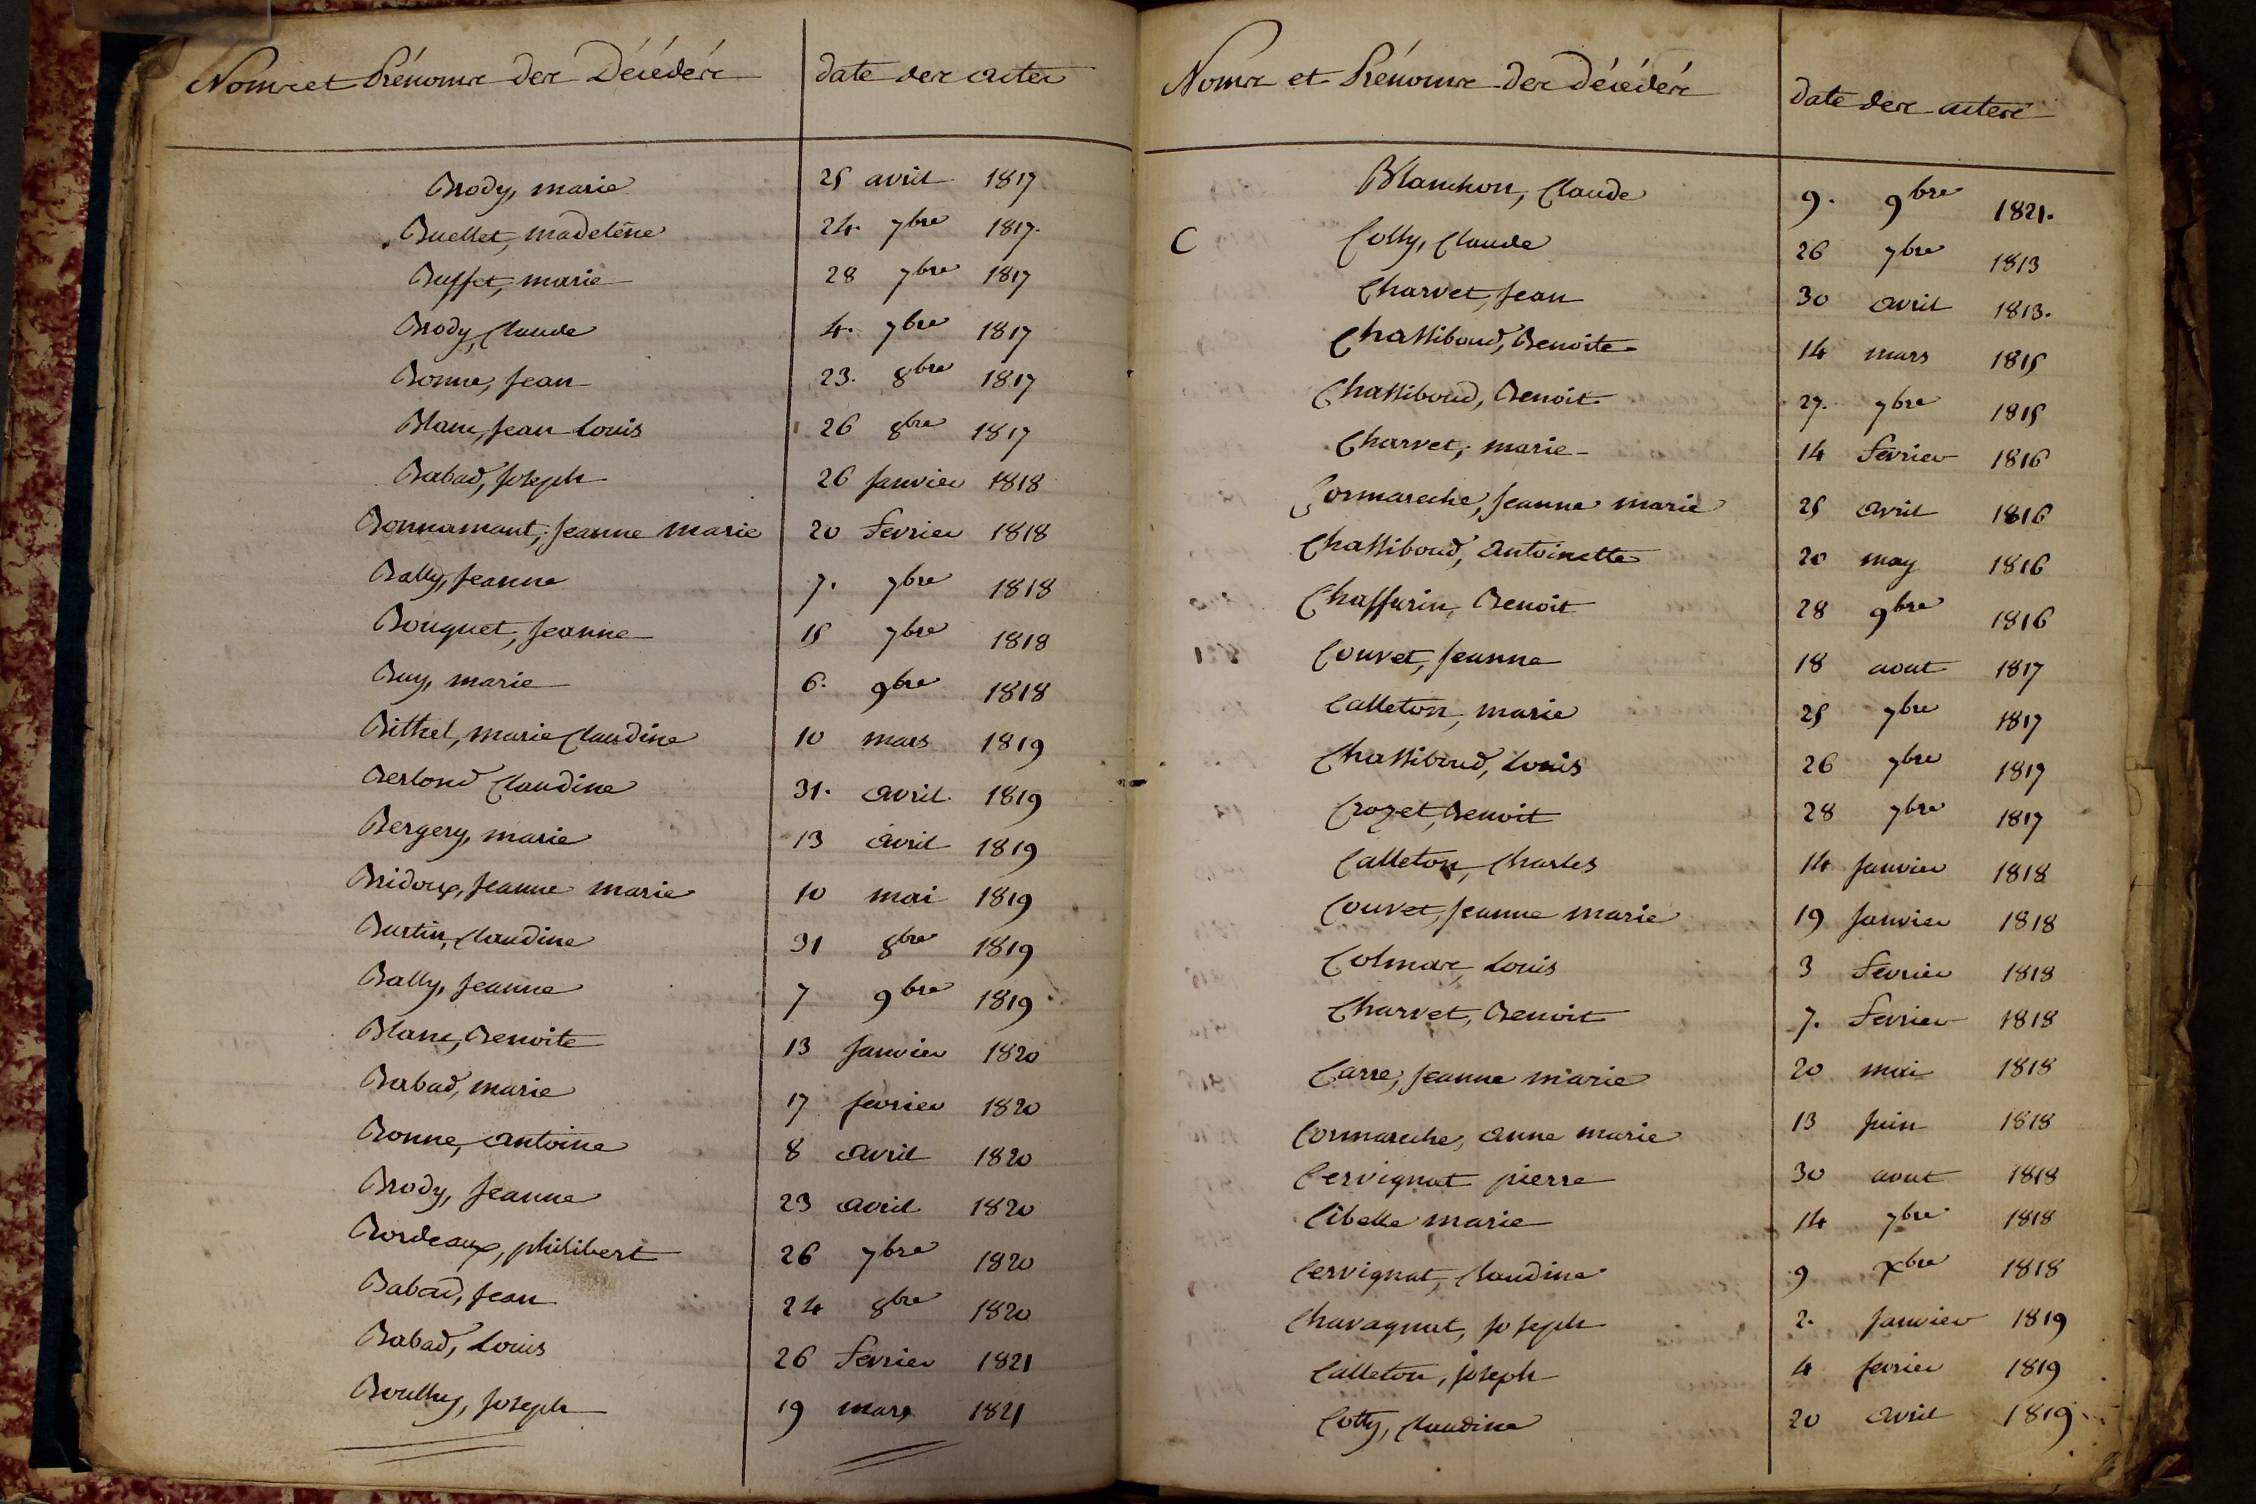 Noms et Prénoms des Décédés date des actes
Brody, marie 25 avril 1817
Buellet, madeléne 24. 7bre 1817.
Buffet, marie 28 7bre 1817
Brody, Claude 4. 7bre 1817
Bonne, Jean 23. 8bre 1817
Blanc, Jean Louis 26 8bre 1817
Babad, Joseph 26 Janvier 1818
Bonnamant, Jeanne marie 20 Fevrier 1818
Bally, Jeanne 7. 7bre 1818
Bouquet, Jeanne 15 7bre 1818
Buy, marie 6. 9bre 1818
Bithel, marie Claudine 10 mars 1819
Berlond Claudine 31. avril. 1819
Bergery, marie 13 avril 1819
Bridoux, Jeanne marie 10 mai 1819
Burtin, Claudine 31 8bre 1819
Bally, Jeanne 7 9bre 1819
Blanc, Benoite 13 Janvier 1820
Babad, marie 17 fevrier 1820
Bonne, antoine 8 avril 1820
Brody, Jeanne 23 avril 1820
Bordeaux, philibert 26 7bre 1820
Babad, Jean 24 8bre 1820
Babad, Louis 26 Fevrier 1821
Boully, Joseph 19 mars 1821
Noms et Prénoms des décédés date des actes
Blanchon, Claude 9. 9bre 1821.
C Colly, Claude 26 7bre 1813
Charvet, Jean 30 avril 1813.
Chassiboud, Benoite 14 mars 1815
Chassiboud, Benoit 27. 7bre 1815
Charvet, marie 14 Fevrier 1816
Cormareche, Jeanne marie 25 avril 1816
Chassiboud, antoinette 20 may 1816
Chaffurin, Benoit 28 9bre 1816
Couvet, Jeanne 18 aout 1817
Calleton, marie 25 7bre 1817
Chassiboud, Louis 26 7bre 1817
Crozet, Benoit 28 7bre 1817
Calleton, Charles 14 Janvier 1818
Couvet, Jeanne marie 19 Janvier 1818
Colmar, Louis 3 Fevrier 1818
Charvet, Benoit 7. Fevrier 1818
Carre, Jeanne marie 20 mai 1818
Cormareche, anne marie 13 Juin 1818
Cervignat pierre 30 aout 1818
Cibelle marie 14 7bre 1818
Cervignat, Claudine 9 Xbre 1818
Chavagnat, Joseph 2. Janvier 1819
Calleton, joseph 4 fevrier 1819
Cotty, Claudine 20 avril 1819